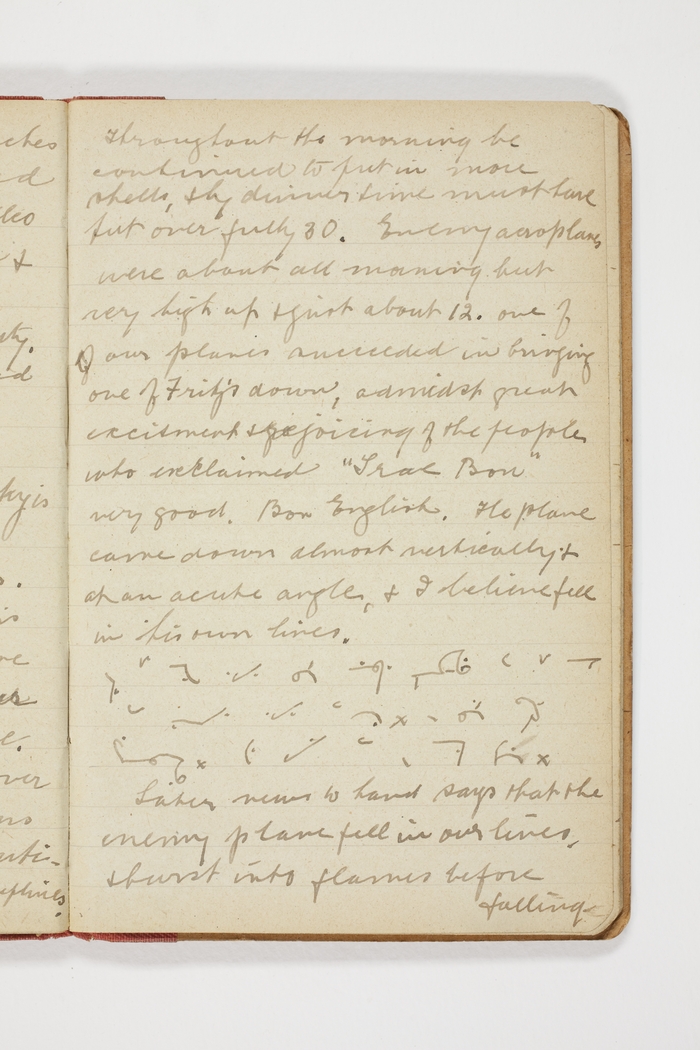 throughout the morning he
continued to put in more
shells, & by dinner time must have
put over fully 30. Enemy aeroplanes
were about all morning but
very high up & just about 12. one of
of our planes succeeded in bringing
one of Fritz's down, admidst great
excitment & rejoicing of the people
who exclaimed "Trae Bon"
very good. Bon English. The plane
came down almost vertically &
at an acute angle, & I believe fell
in his own lines.
Later news to hand says that the
enemy plane fell in our lines,
& burst into flames before
falling
ches
ed
&
ty.
ed
is
over